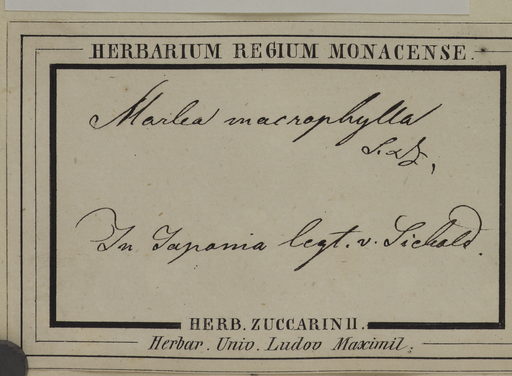 HERBARIUM REGIUM MONACENSE.
Marlea macrophylla
S. & Z.,
In Japonia legt. v. Siebold.
HERB. ZUCCARINII.
Herbar. Univ. Ludov Maximil.